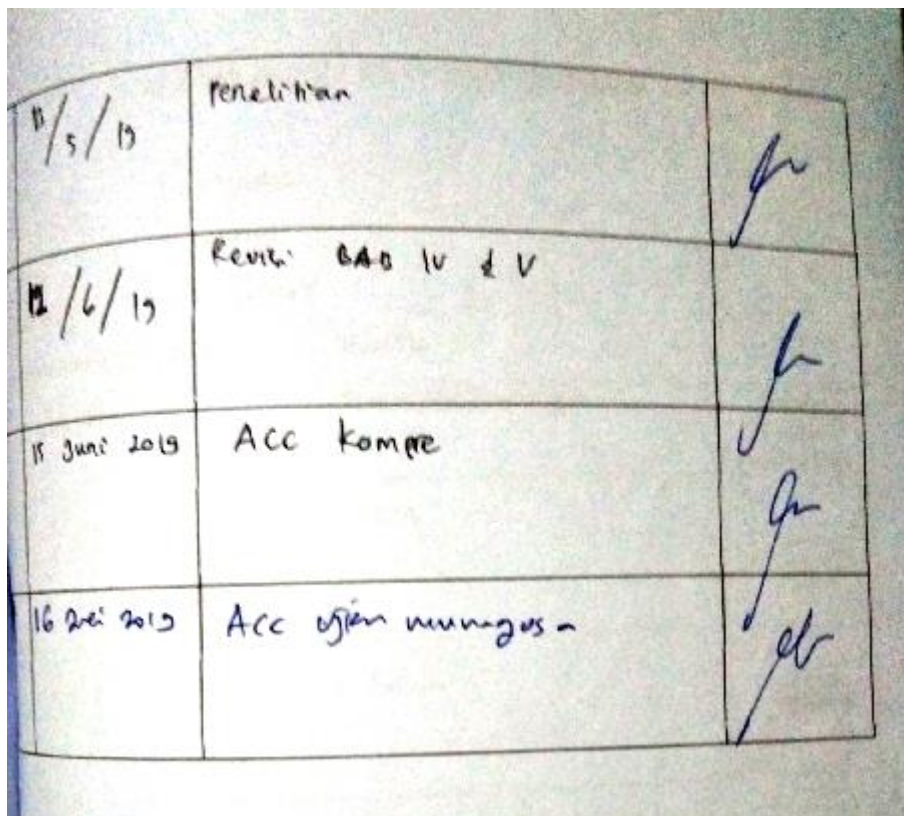 /5/19
Penelitian
/6/19
Revisi BAB IV & V
15 Juni 2019
ACC Kompre
16 2019
ACC ujian munaqosa